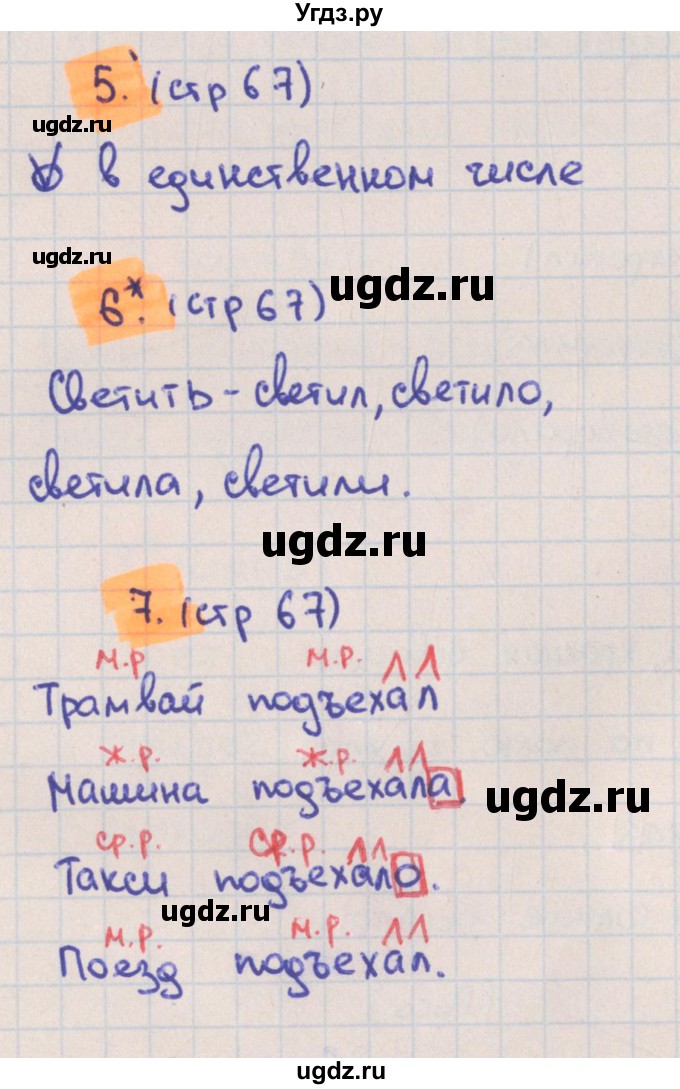 Угдз.ру
5. (стр 67)
ugdz.ru
в единственном числе
ugdz.ru
6*. (стр 67)
ugdz.ru
Светить - светил, светило,
светила, светили.
ugdz.ru
7. (стр 67)
м.р. м.р.
Трамвай подъехал
ж.р. ж.р.
Машина подъехала.
ugdz.ru
ср.р. ср.р.
Такси подъехало.
ugdz.ru
м.р. м.р.
Поезд подъехал.
ugdz.ru
ugdz.ru